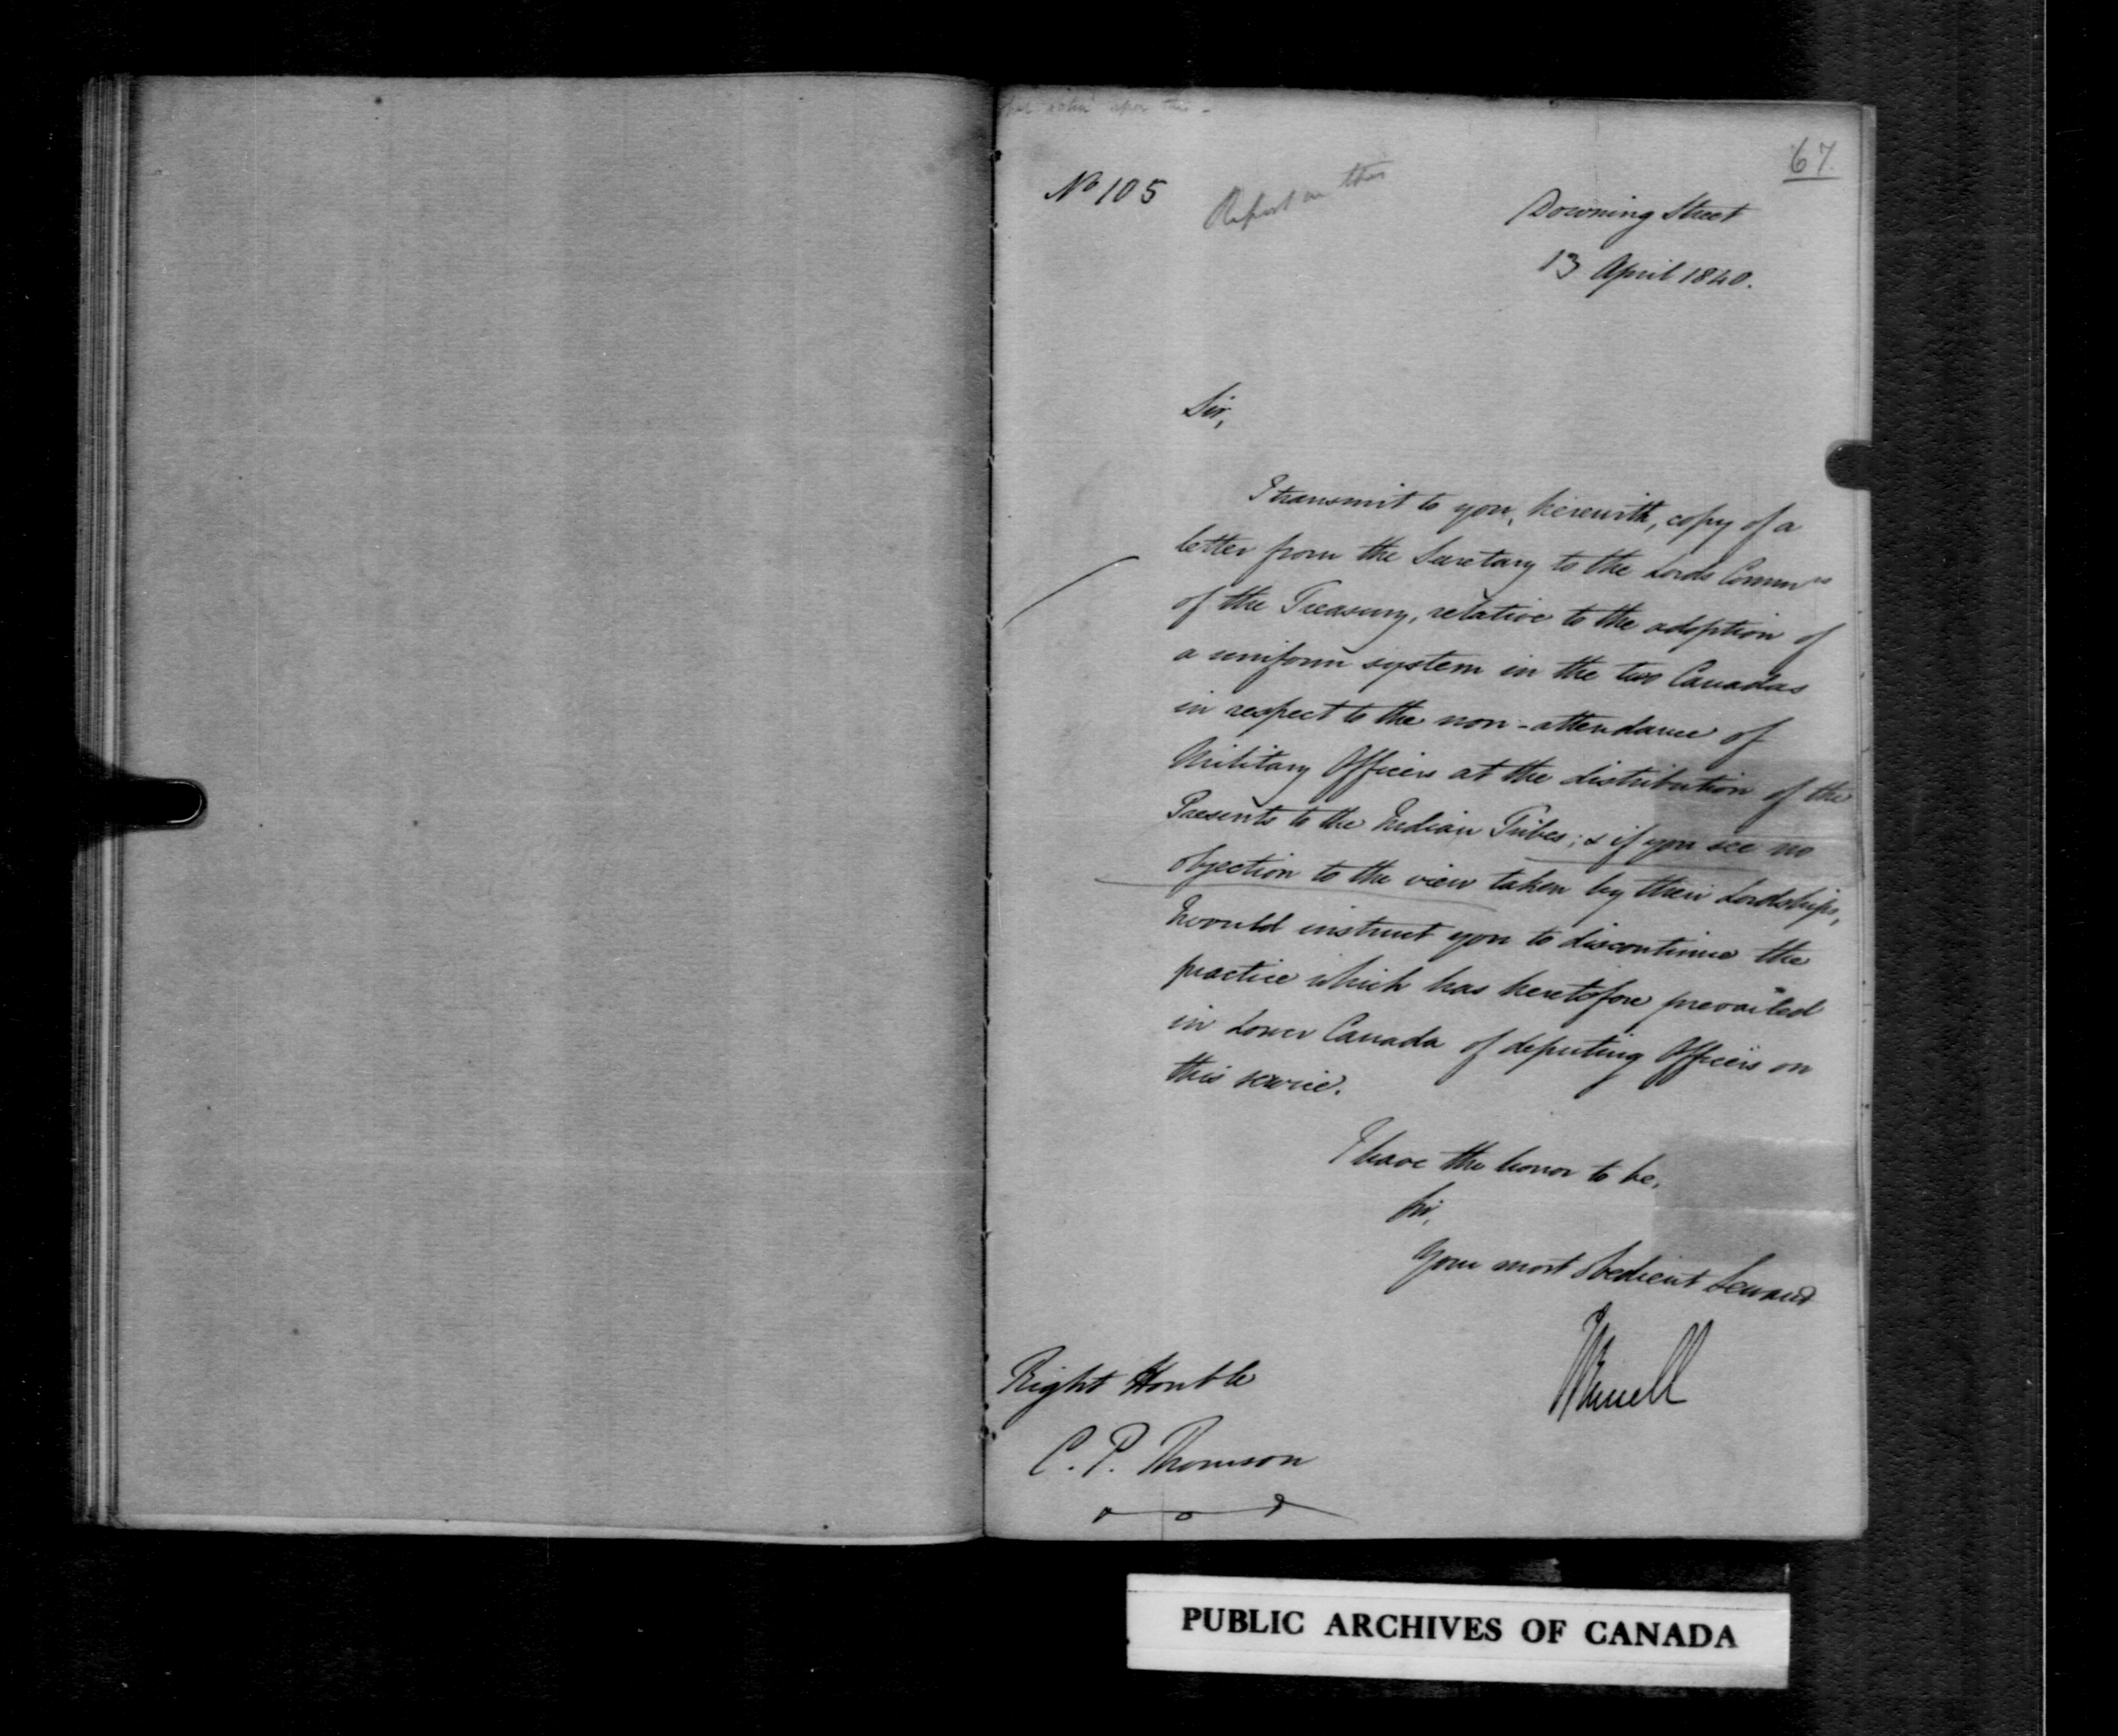 upon this -
67.
No 105
Report on this
Downing Street
13 April 1840.
Sir,
I transmit to you, herewith, copy of a
letter from the Secretary to the Lords Commrs
of the Treasury, relative to the adoption of
a uniform system in the two Canadas
in respect to the non-attendance of
Military Officers at the distribution of the
Presents to the Indian Tribes; & if you see no
objection to the view taken by their Lordships,
I would instruct you to discontinue the
practice which has heretofore prevailed
in Lower Canada of deputing Officers on
this service.
I have the honor to be,
Sir,
Your most Obedient Servant
J Russell
Right Honble
C. P. Thomson
PUBLIC ARCHIVES OF CANADA